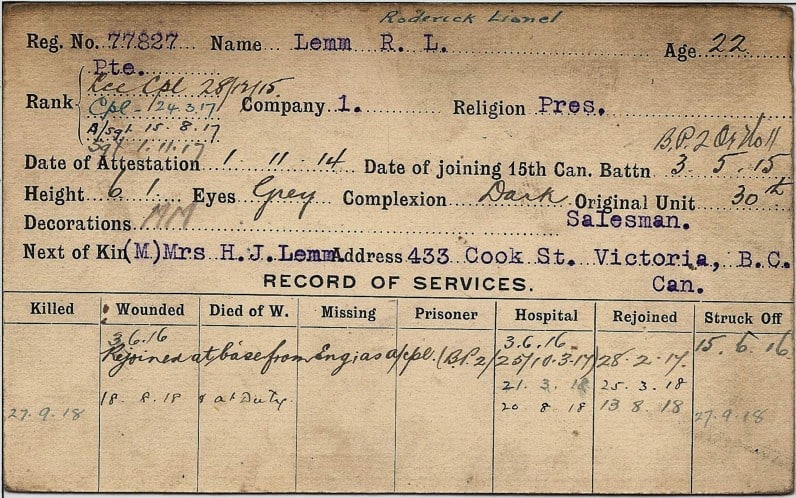 Roderick Lionel
Reg. No. 77827 Name Lemm R. L. Age 22
Pte.
Lce Cpl 28/12/15.
Rank Cpl - 24.3.17 Company 1. Religion Pres.
A/Sgt. 15.8.17
Sgt. 1.11.17 B.P.2
Date of Attestation 1 - 11 - 14 Date of joining 15th Can. Battn 3. 5. 15
Height 6 1 Eyes Grey Complexion Dark Original Unit 30th
Decorations MM Salesman.
Next of Kin (M) Mrs H.J. Lemm Address 433 Cook St. Victoria, B.C.
Can.
RECORD OF SERVICES.
Killed Wounded Died of W. Missing Prisoner Hospital Rejoined Struck Off
3.6.16 3.6.16 15.6.16
Rejoined at base from Eng: as a/cpl. (B.P.2) 28.2.17.
21. 3. 18 25. 3. 18
18. 8. 18 at Duty. 20 8 18 13 8. 18
27.9.18 27.9.18